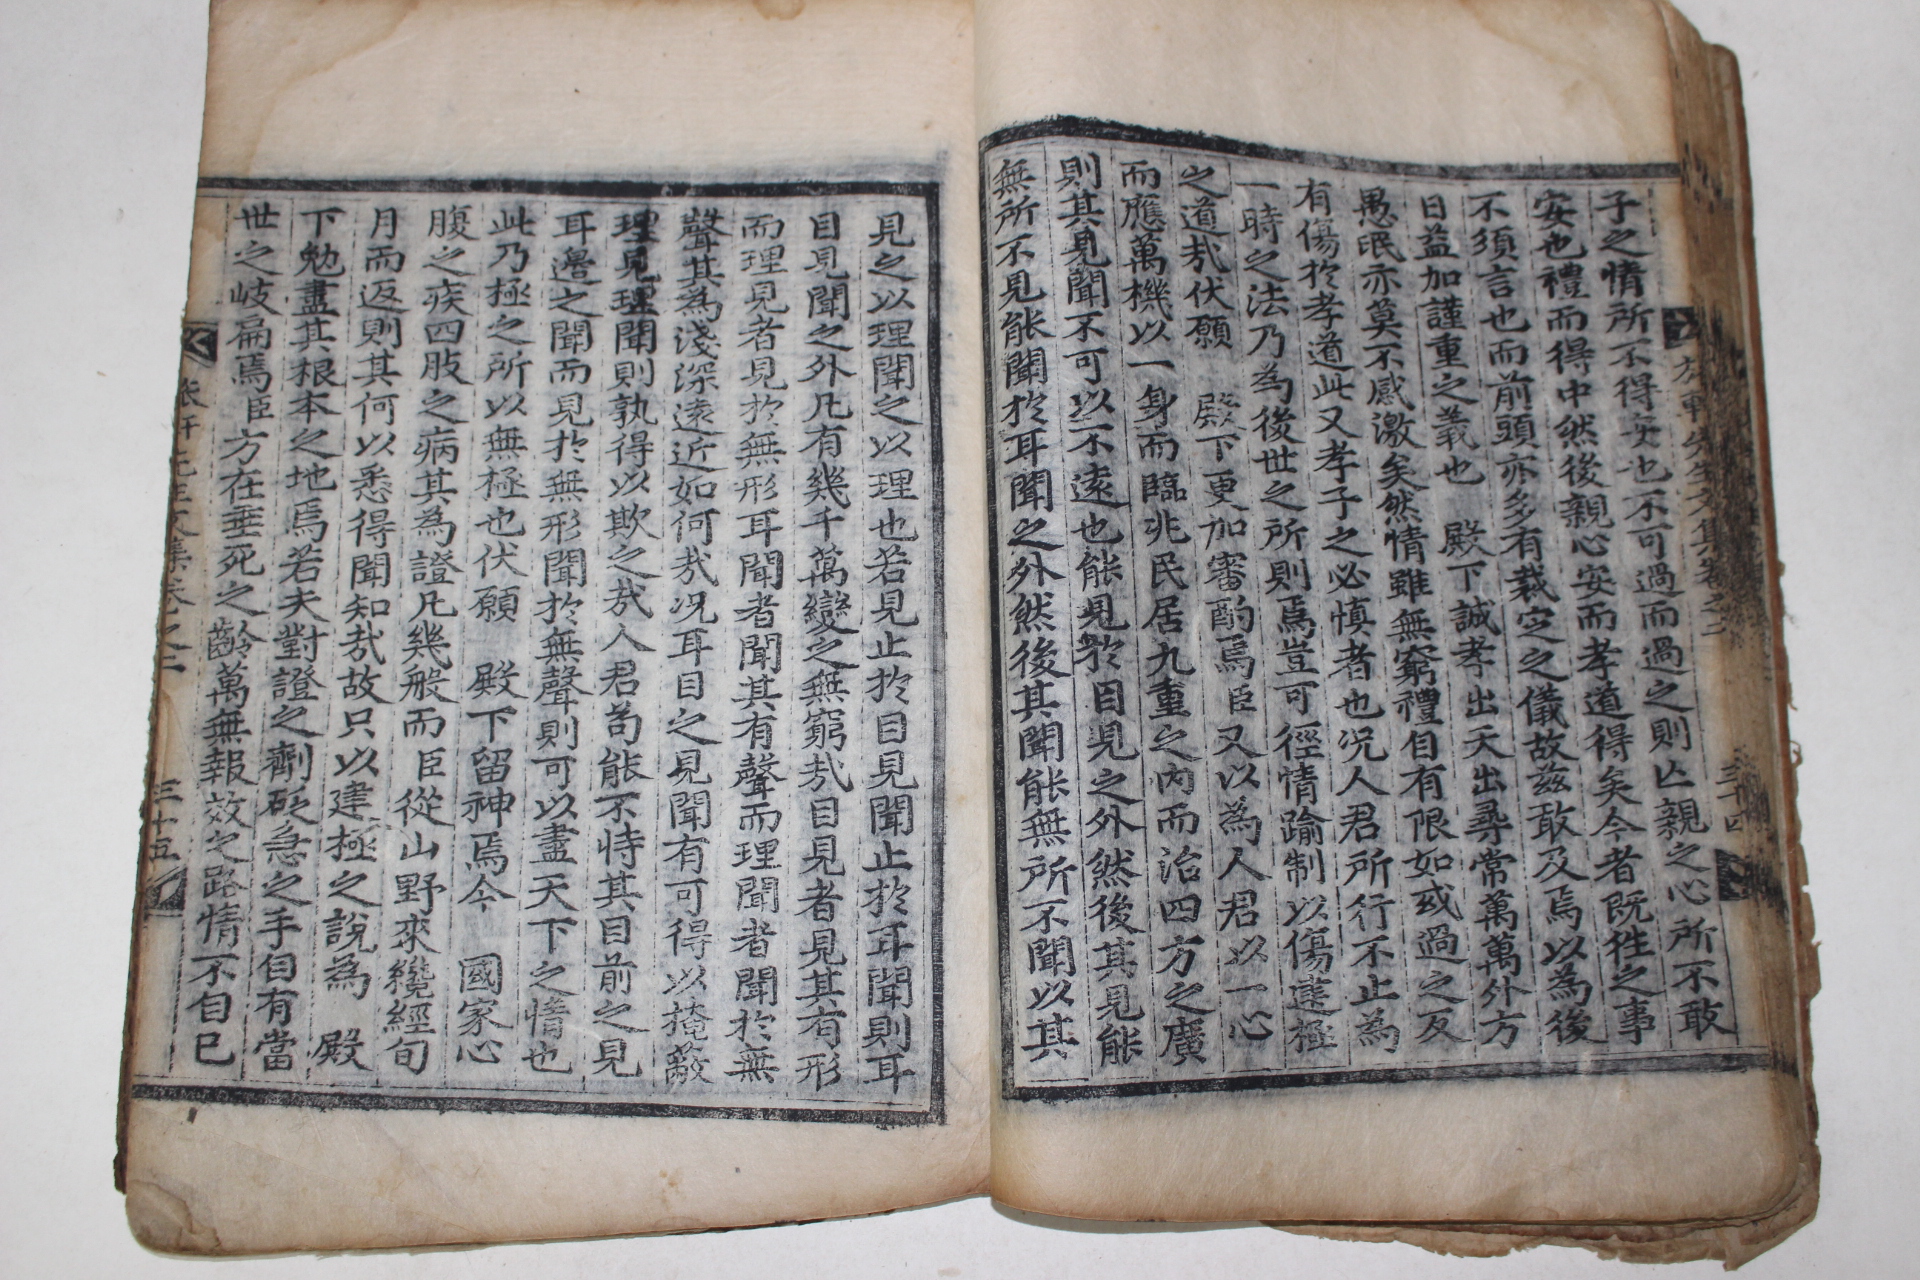 子之情所不得安也不可過而過之則亡親之心所不敢
安也禮而得中然後親心安而孝道得矣今者既往之事
不須言也而前頭亦多有裁定之儀故茲敢及焉以為後
日益加謹重之義也 殿下誠孝出天出尋常萬萬外方
愚氓亦莫不感激矣然情雖無窮禮自有限如或過之反
有傷於孝道此又孝子之必慎者也况人君所行不止為
一時之法乃為後世之所則焉豈可徑情踰制以傷建極
之道㢤伏願 殿下更加審酌焉臣又以為人君以一心
而應萬機以一身而臨兆民居九重之內而治四方之廣
則其見聞不可以不遠也能見於目見之外然後其見能
無所不見能聞於耳聞之外然後其聞能無所不聞以其
三十四
見之以理聞之以理也若見止於目見聞止於耳聞則耳
目見聞之外凡有幾千萬變之無窮㢤目見者見其有形
而理見者見於無形耳聞者聞其有聲而理聞者聞於無
聲其為淺深遠近如何㢤况耳目之見聞有可得以掩蔽
理見理聞則孰得以欺之㢤人君苟能不恃其目前之見
耳邊之聞而見於無形聞於無聲則可以盡天下之情也
此乃極之所以無極也伏願 殿下留神焉今 國家心
腹之疾四肢之病其為證凡幾般而臣從山野來纔經旬
月而返則其何以悉得聞知㢤故只以建極之說為 殿
下勉盡其根本之地焉若夫對證之劑砭急之手自有當
世之岐扁焉臣方在垂死之齡萬無報效之路情不自已
三十五